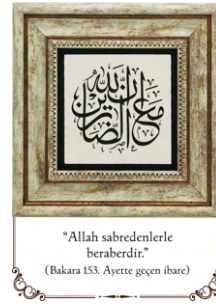 إن الله مع الصابرين
“Allah sabredenlerle
beraberdir.”
(Bakara 153. Ayette geçen ibare)